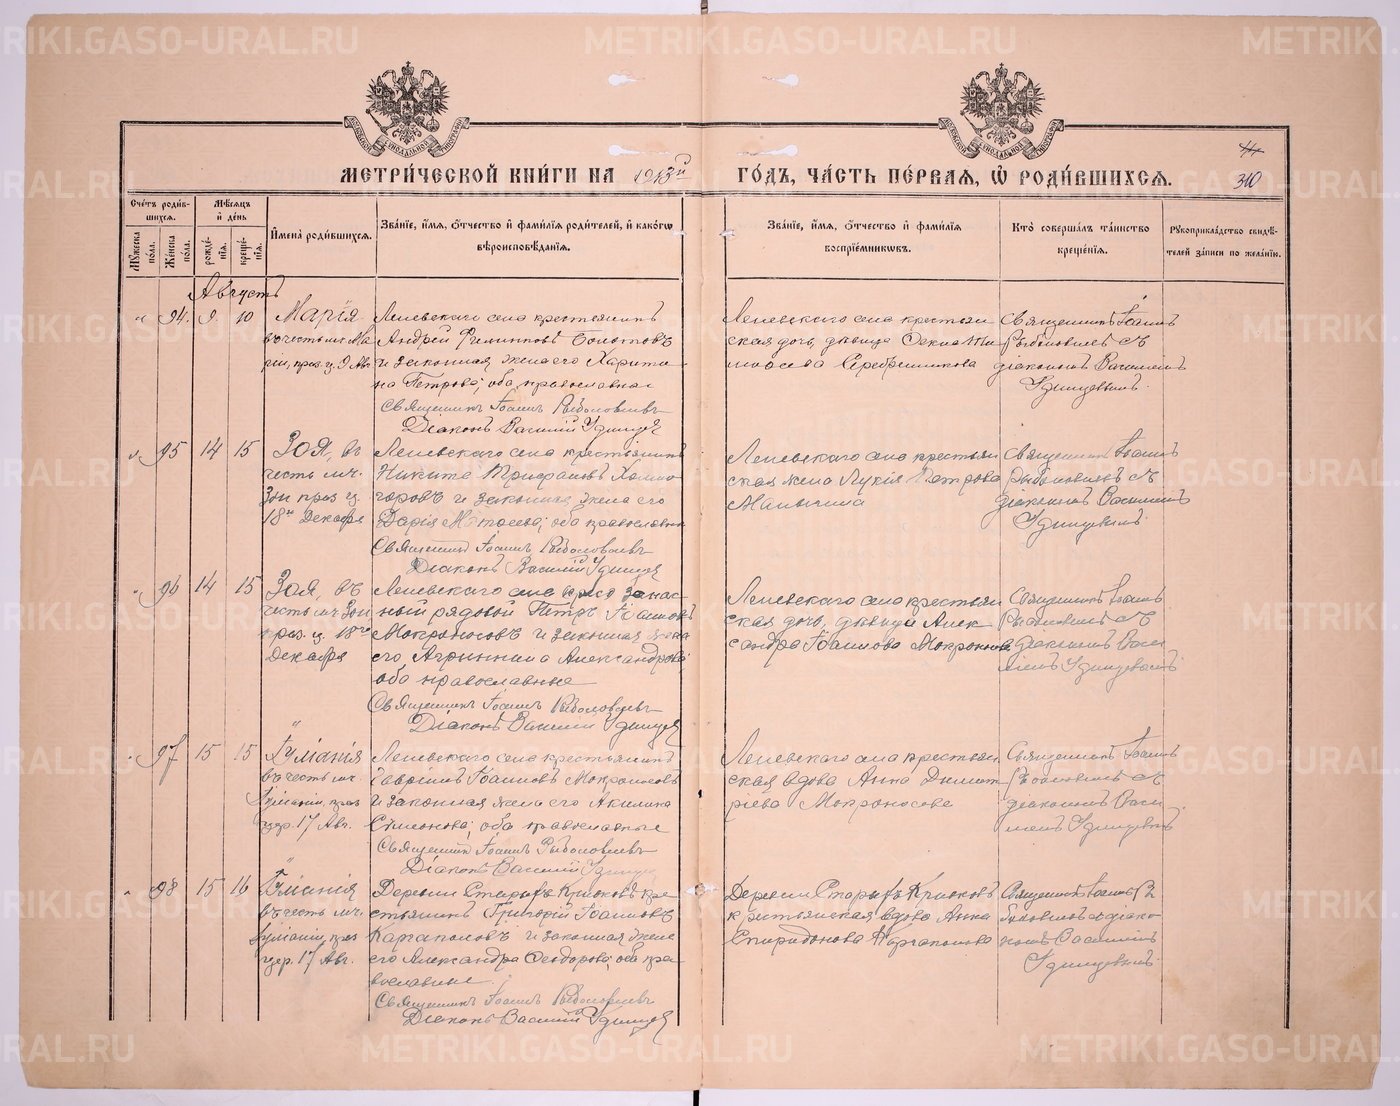 МЕТРИ́ЧЕСКОЙ КНИ́ГИ НА 1913й ГО́ДЪ, ЧА́СТЬ ПЕ́РВАЯ, Ѡ РОДИ́ВШИХСЯ.
310
Сче́тъ роди́вшихся.
Мѣ́сяцъ и день
Мужеска пола.
Же́нска по́ла.
рожде́нія.
креще́нія.
Имена̀ роди́вшихся.
Зва́ніе, и́мя, о́тчество и фами́лія роди́телей, и како́гѡ вѣроисповѣ́данія.
Зва́ніе, и́мя, о́тчество и фами́лія воспріе́мникѡвъ.
Кто̀ соверша́лъ та́инство креще́нія.
Рукоприкла́дство свидѣ́телей за́писи по жела́нію.
Августъ
94. 9 10 Марія
въ честь
Леневскаго села крестьянинъ
Андрей Филипповъ
и законная жена его Харити-
на Петрова; оба православные
Священникъ Іоаннъ Рыболовлевъ
Діаконъ Василій Удинцев
Леневскаго села крестьян
ская дочь, девица Серебренникова
Священникъ Іоаннъ
Рыболовлевъ съ
діакономъ Василіемъ
Удинцевымъ.
95 14 15 Зоя, въ
честь мч.
Зои праз. ц.
18го Декабря
Леневскаго села крестьянинъ
Никита
и законная жена его
Дарія оба православные
Священникъ Іоаннъ Рыболовлевъ
Діаконъ Василій Удинцев
Леневскаго села крестьян
ская жена Лукія Петрова
Священникъ Іоаннъ
Рыболовлевъ съ
діакономъ Василіемъ
Удинцевымъ
96 14 15 Зоя, въ
честь мч. Зои
праз. ц. 18го
Декабря
Леневскаго села запас-
ный рядовой Петръ Іоанновъ
Мокроносовъ и законная жена
его Агриппина Александрова
оба православные
Священникъ Іоаннъ Рыболовлевъ
Діаконъ Василій Удинцев
Леневскаго села крестьян
ская дочь, девица Алек
сандра Іоаннова Мокроносова
Священникъ Іоаннъ
Рыболовлевъ съ
діакономъ Васи
ліемъ Удинцевымъ
97 15 15 Іуліанія
въ честь мч.
Іуліаніи, праз.
цер. 17 Авг.
Леневскаго села крестьянинъ
Гавріилъ Іоанновъ Мокроносовъ
и законная жена его Акилина
Симонова; оба православные
Священникъ Іоаннъ Рыболовлевъ
Діаконъ Василій Удинцев
Леневскаго села крестьян
ская вдова Анна Димит
ріева Мокроносова
Священникъ Іоаннъ
Рыболовлевъ съ
діакономъ Васи
ліемъ Удинцевымъ
98 15 16 Іуліанія
въ честь мч.
Іуліаніи праз
цер. 17 Авг.
Деревни Старыхъ Кривковъ кре
стьянинъ Григорій Іоанновъ
Каргаполовъ и законная жена
его Александра Феодорова; оба пра-
вославные.
Священникъ Іоаннъ Рыболовлевъ
Діаконъ Василій Удинцев
Деревни Старыхъ Кривковъ
крестьянская вдова Анна
Спиридонова Каргаполова
Священникъ Іоаннъ Ры
боловлевъ съ діако
номъ Василіемъ
Удинцевымъ.
METRIKI.GASO-URAL.RU